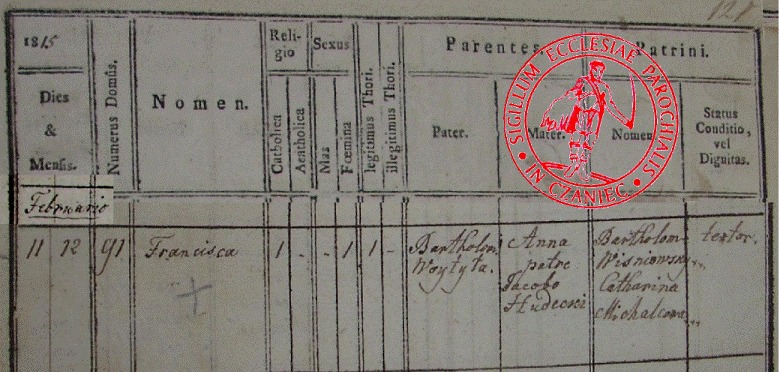 1815
Dies
&
Mensis.
Numerus Domûs.
Nomen.
Religio
Catholica
Acatholica
Sexus
Mas
Fœmina
legitimus Thori.
illegitimus Thori.
Parentes.
Pater.
Mater.
Patrini.
Nomen
Status
Conditio,
vel
Dignitas.
SIGILLUM ECCLESIAE PAROCHIALIS
• IN CZANIEC •
Februario
11 12 91 Francisca 1 - - 1 1 -
Bartholom
Woytyła.
Anna
patre
Jacobo
Hudecki
Bartholom
Wisniowsky
Catharina
Michalcowa
textor.